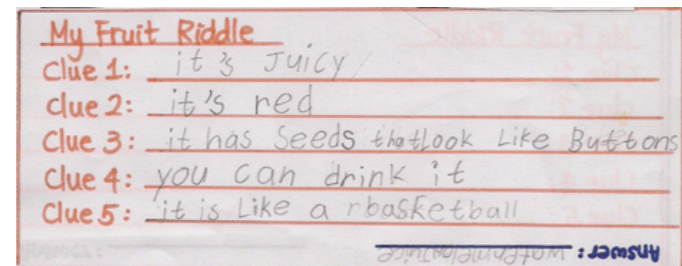 My Fruit Riddle
Clue 1: it's Juicy
Clue 2: it's red
Clue 3: it has Seeds thatLook Like Buttons
Clue 4: you can drink it
Clue 5: it is Like a rbasketball
Answer: watermelonJuice